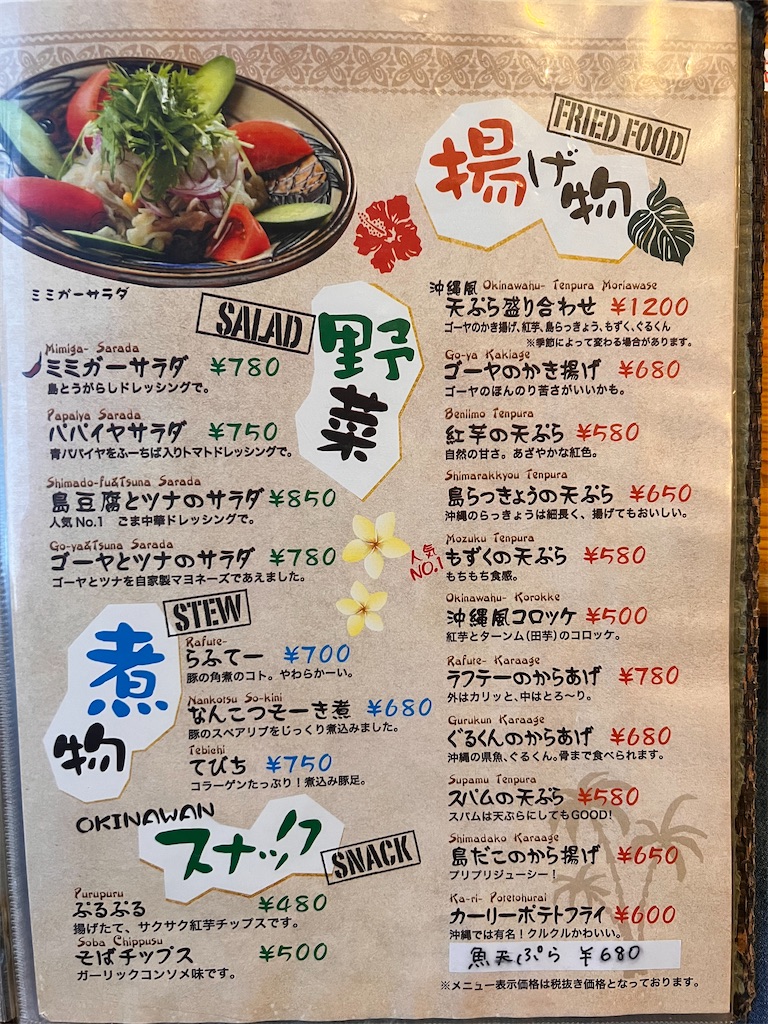 ミミガーサラダ
SALAD
野菜
Mimiga- Sarada
ミミガーサラダ ¥780
島とうがらしドレッシングで。
Papaiya Sarada
パパイヤサラダ ¥750
青パパイヤをふーちば入りトマトドレッシングで。
Shimado-fu&Tsuna Sarada
島豆腐とツナのサラダ ¥850
人気No.1 ごま中華ドレッシングで。
Go-ya&Tsuna Sarada
ゴーヤとツナのサラダ ¥780
ゴーヤとツナを自家製マヨネーズであえました。
STEW
煮物
Rafute-
らふてー ¥700
豚の角煮のコト。やわらかーい。
Nankotsu So-kini
なんこつそーき煮 ¥680
豚のスペアリブをじっくり煮込みました。
Tebichi
てびち ¥750
コラーゲンたっぷり！煮込み豚足。
OKINAWAN
スナック
SNACK
Purupuru
ぷるぷる ¥480
揚げたて、サクサク紅芋チップスです。
Soba Chippusu
そばチップス ¥500
ガーリックコンソメ味です。
FRIED FOOD
揚げ物
沖縄風 Okinawahu- Tenpura Moriawase
天ぷら盛り合わせ ¥1200
ゴーヤのかき揚げ、紅芋、島らっきょう、もずく、ぐるくん
※季節によって変わる場合があります。
Go-ya Kakiage
ゴーヤのかき揚げ ¥680
ゴーヤのほんのり苦さがいいかも。
Beniimo Tenpura
紅芋の天ぷら ¥580
自然の甘さ。あざやかな紅色。
Shimarakkyou Tenpura
島らっきょうの天ぷら ¥650
沖縄のらっきょうは細長く、揚げてもおいしい。
人気NO.1
Mozuku Tenpura
もずくの天ぷら ¥580
もちもち食感。
Okinawahu- Korokke
沖縄風コロッケ ¥500
紅芋とターンム(田芋)のコロッケ。
Rafute- Karaage
ラフテーのからあげ ¥780
外はカリッと、中はとろ〜り。
Gurukun Karaage
ぐるくんのからあげ ¥680
沖縄の県魚、ぐるくん。骨まで食べられます。
Supamu Tenpura
スパムの天ぷら ¥580
スパムは天ぷらにしてもGOOD!
Shimadako Karaage
島だこのから揚げ ¥650
プリプリジューシー！
Ka-ri- Potetohurai
カーリーポテトフライ ¥600
沖縄では有名！クルクルかわいい。
魚天ぷら ¥680
※メニュー表示価格は税抜き価格となっております。